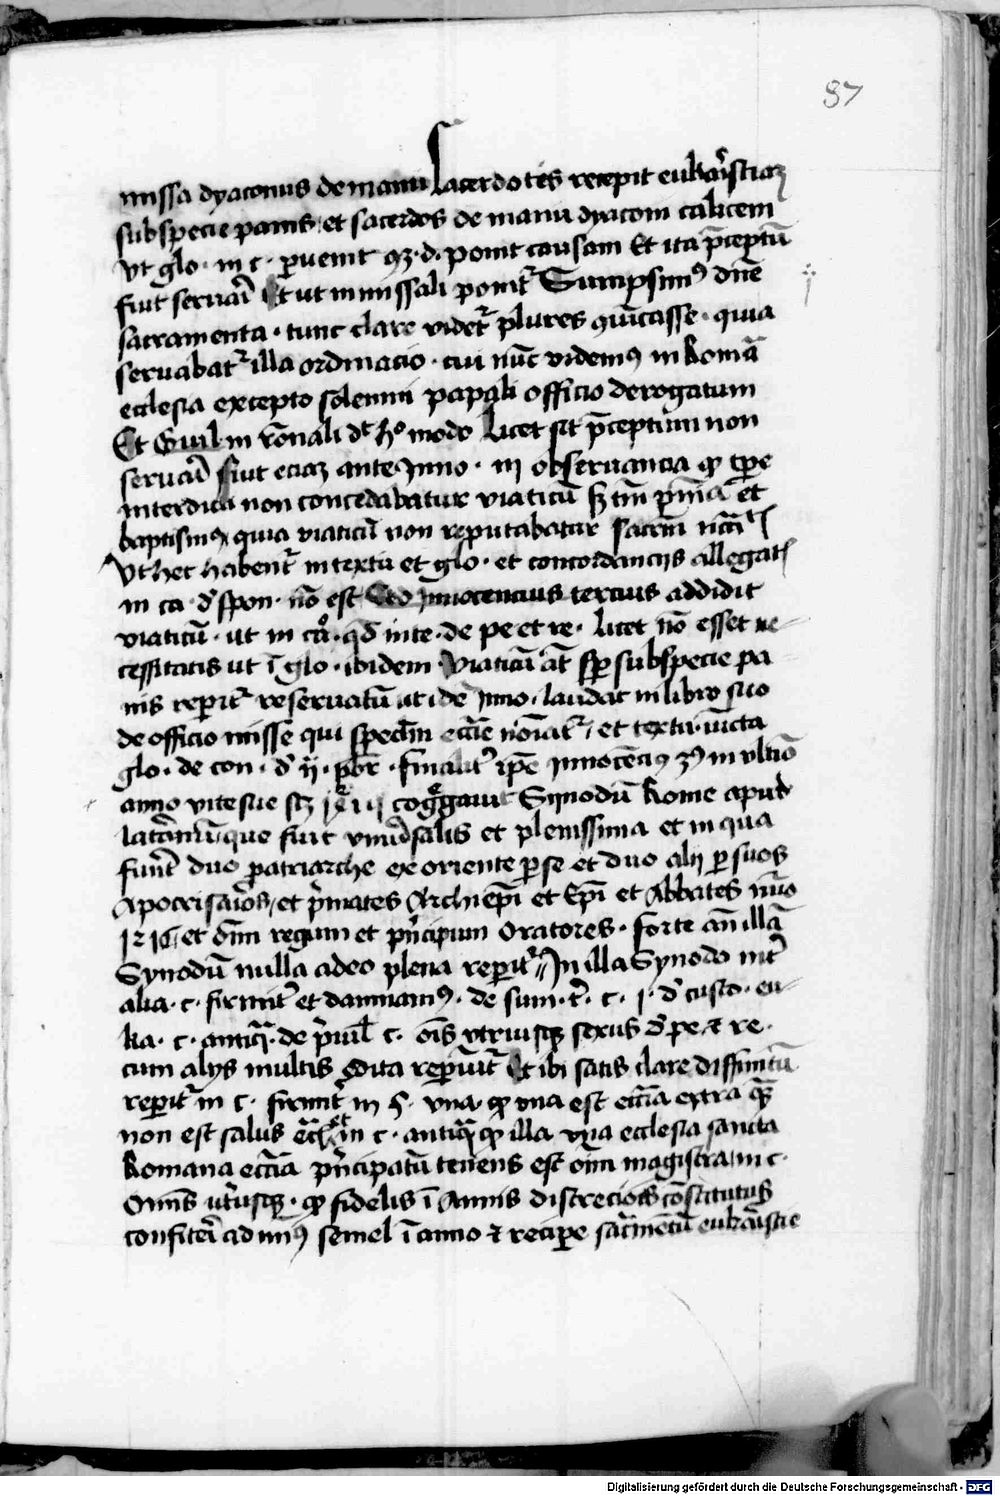 87
missa dyaconus de manu sacerdotis recepit eukaristiaꝫ
sub specie panis et sacerdos de manu dyaconi calicem
vt glo · in c · peruenit · ꝙ · d · ponit causam Et ita p̄ceptū
fiut seruari Et ut in missali ponit᷑ Sumpsimꝰ dn̄e
sacramenta · tunc clare videt᷑ plures cōicasse · quia
seruabat᷑ illa ordinacio · cui nūc videmꝰ in Romā
ecclesia excepto solemni papali officio derogatum
Et Guil in r̄onali dt hͦ modo Licet sit p̄ceptum non
seruari fiut eciaꝫ ante Inno · iij obseruancia ꝙ tꝑe
interdicti non concedabatur viaticū sꝫ tm̄ pn̄ia et
baptismꝰ quia viaticū non reputabatur sacrm̄
Vt hec habent᷑ in textu et glo · et concordancijs allegatꝭ
in ca · d̓ spon · nō est Sed Innocencius tercius addidit
viaticū · ut in c · qd̄ in te · de pe et re · licet nō esset ne-
cessitatis ut ī glo · ibidem · Viaticū āt sp̄ sub specie pa
nis reperit᷑ reseruatū ut idē Inno · laudat in libro suo
de officio misse qui speclm̄ ecc̄e noīat᷑ et textu · iūcta
glo · de con · d̓ ij · · finalit᷑ ip̄e Innocēciꝰ 3ꝰ in vltīo
anno vite sue scꝫ cōgregauit Synodū Rome apud
lat̄anū que fuit vniu̓salis et plenissima et in qua
fuert̄ duo patriarche ex oriente ꝑ se et duo alij ꝑ suos
Apocrisarios et p̄mates Archiep̄i et Ep̄i et Abbates nūo
1215 et om̄i regum et p̄ncipum Oratores · forte an̄ illā
Synodū nulla adeo plena reperit᷑ In illa Synodo int̓
alia · c · firmit̓ et damnamꝰ · de sum · t̓ · c · 1 · d̓ custo · eu-
ka · c · antiqa · de p̓uil c · om̄s vtriusqꝫ sexus d̓ pe & re ·
cum alijs multis dita reperiūt᷑ Et ibi satis clare diffinitū
reperit᷑ in c · firmit̓ in §. vna · ꝙ vna est eccīa extra quā
non est salus Et in c · antiqa ꝙ illa vna ecclesia sancta
Romana eccīa p̓ncipatū tenens est oīm magistra in c ·
Omīs vt̓usqꝫ · ꝙ fidelis ī Annis discrecionis cōstitutus
confiteri ad minꝰ semel ī anno & recipe sacrmentū eukaristie
Digitalisierung gefördert durch die Deutsche Forschungsgemeinschaft - DFG